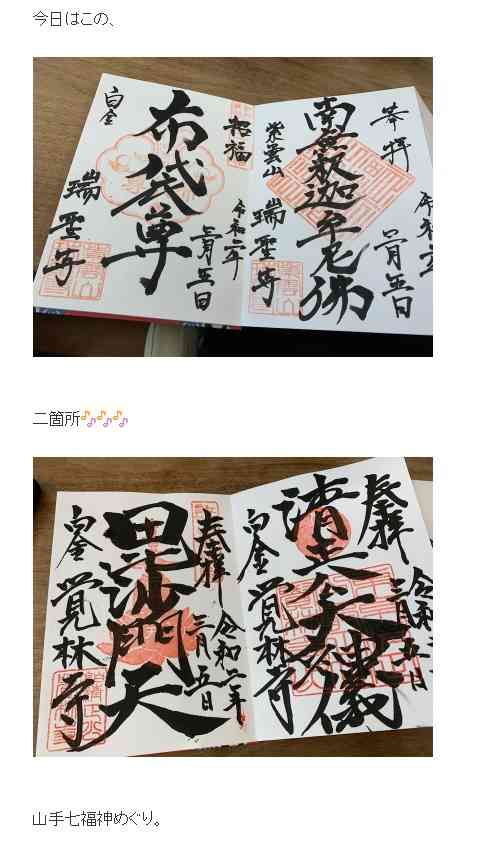 今日はこの、
奉拝
南無釈迦牟尼佛
紫雲山
瑞聖寺
招福
布袋尊
令和二年
三月五日
白金
瑞聖寺
二箇所🎶🎶🎶
奉拝
令和
三月五日
清正公大神儀
白金
覚林寺
奉拝
令和二年
三月五日
毘沙門天
白金
覚林寺
山手七福神めぐり。